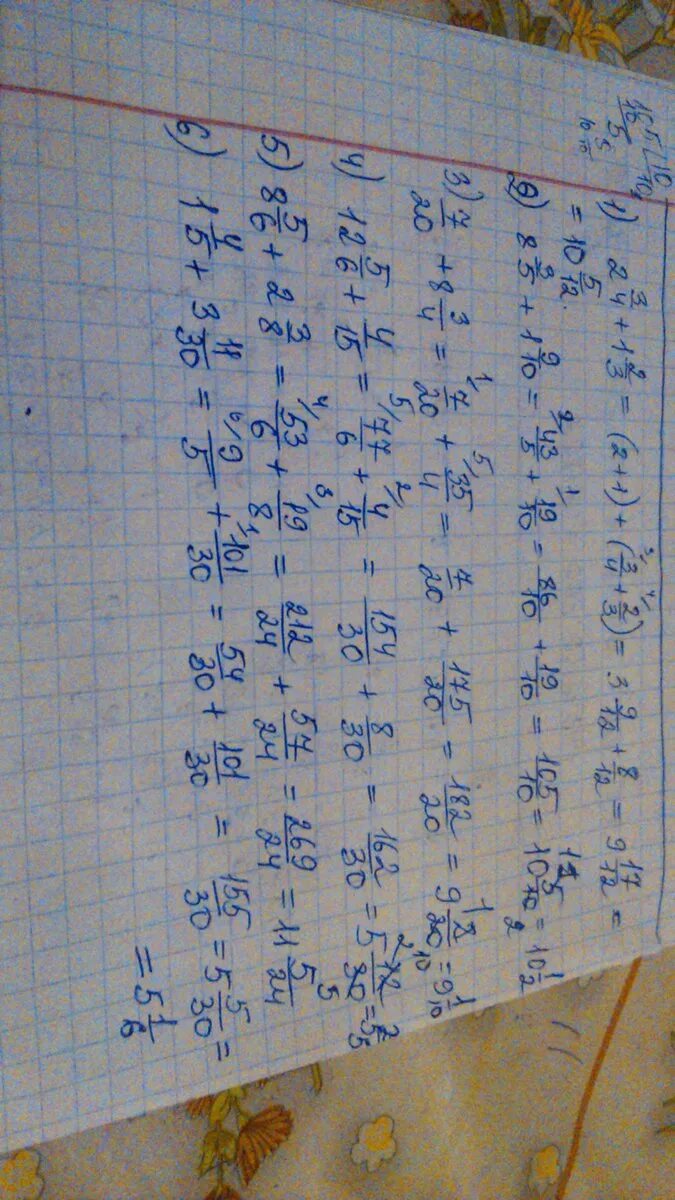 1) 2 3/4 + 1 2/3 = (2+1) + (3/4 + 2/3) = 3 9/12 + 8/12 = 9 17/12 =
= 10 5/12.
2) 8 3/5 + 1 9/10 = 43/5 + 19/10 = 86/10 + 19/10 = 105/10 = 10 5/10 = 10 1/2
3) 7/20 + 8 3/4 = 7/20 + 35/4 = 7/20 + 175/20 = 182/20 = 9 2/20 = 9 1/10
4) 12 5/6 + 4/15 = 77/6 + 4/15 = 154/30 + 8/30 = 162/30 = 5 12/30 = 5 2/5
5) 8 5/6 + 2 3/8 = 53/6 + 19/8 = 212/24 + 57/24 = 269/24 = 11 5/24
6) 1 4/5 + 3 11/30 = 9/5 + 101/30 = 54/30 + 101/30 = 155/30 = 5 5/30 =
= 5 1/6